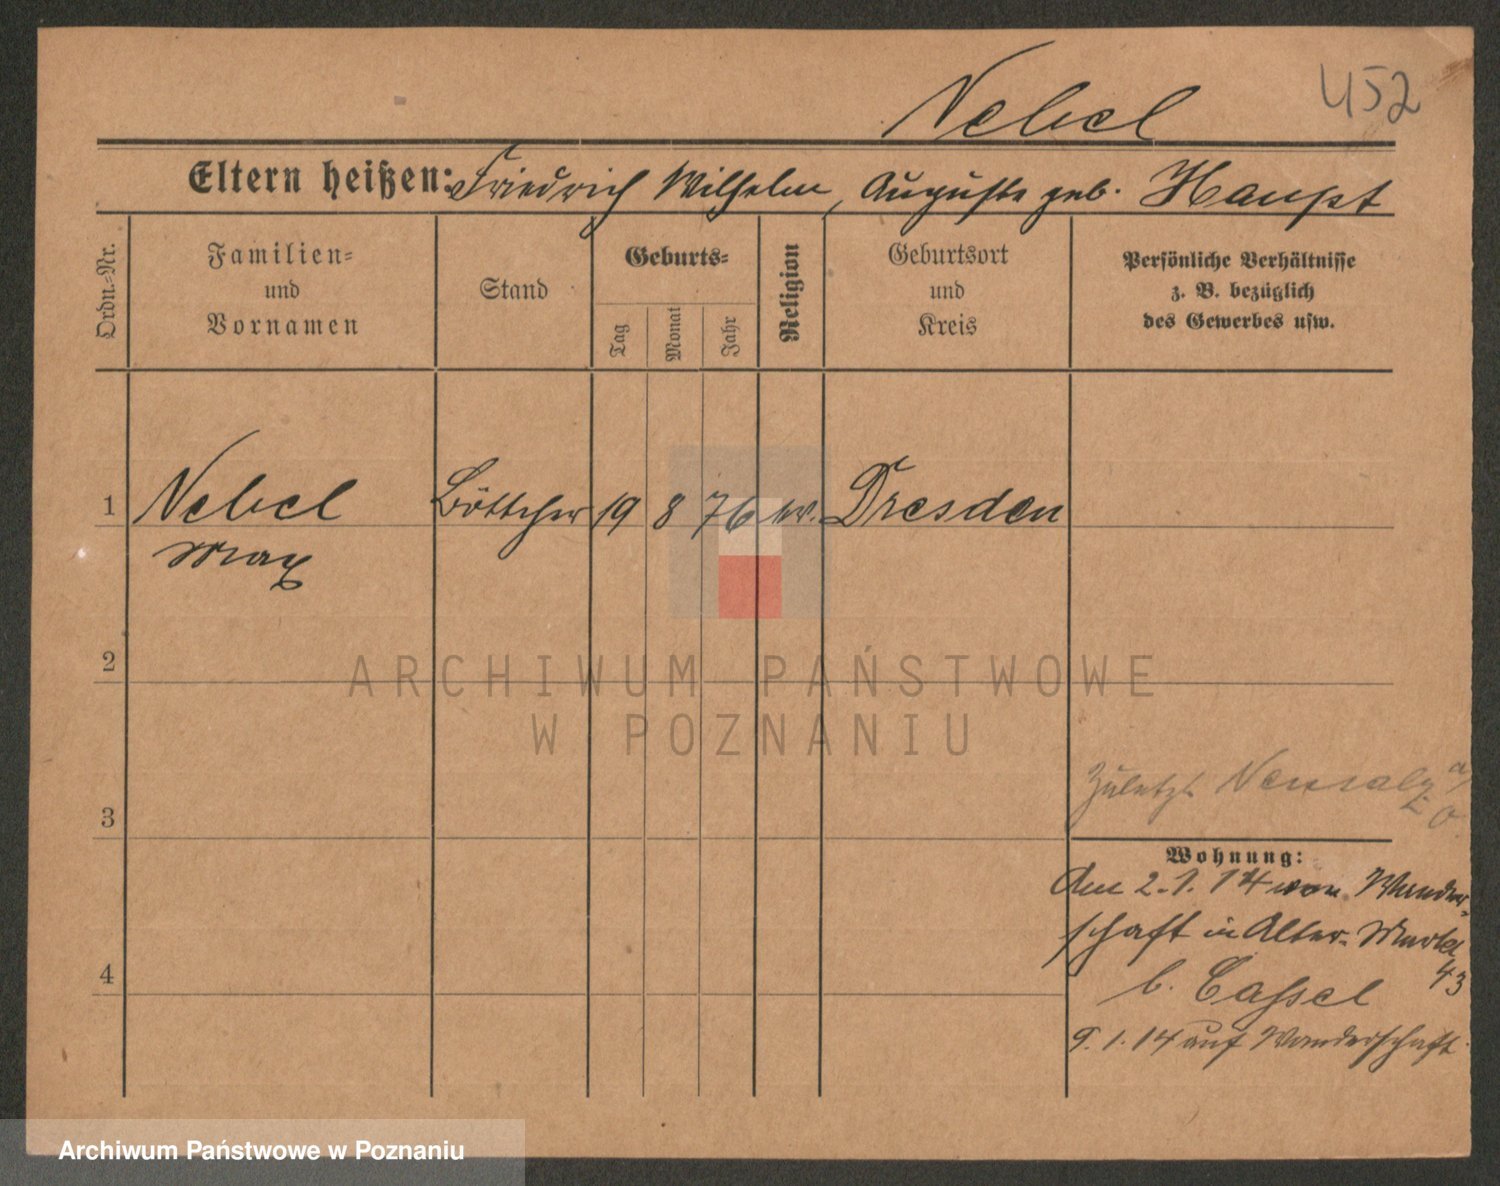 Nebel 452
Eltern heißen: Friedrich Wilhelm, Auguste geb. Haupt
Ordn.-Nr.
Familien-
und
Vornamen
Stand
Geburts-
Tag
Monat
Jahr
Religion
Geburtsort
und
Kreis
Persönliche Verhältnisse
z. B. bezüglich
des Gewerbes usw.
1 Nebel Böttcher 19 8 76 ev. Dresden
Max
2
3
4
Zuletzt Neusalz a/O.
Wohnung:
Am 2.1.14 von Wander-
schaft in Alter-Markt
43
b. Cassel
9.1.14 auf Wanderschaft
ARCHIWUM PAŃSTWOWE
W POZNANIU
Archiwum Państwowe w Poznaniu